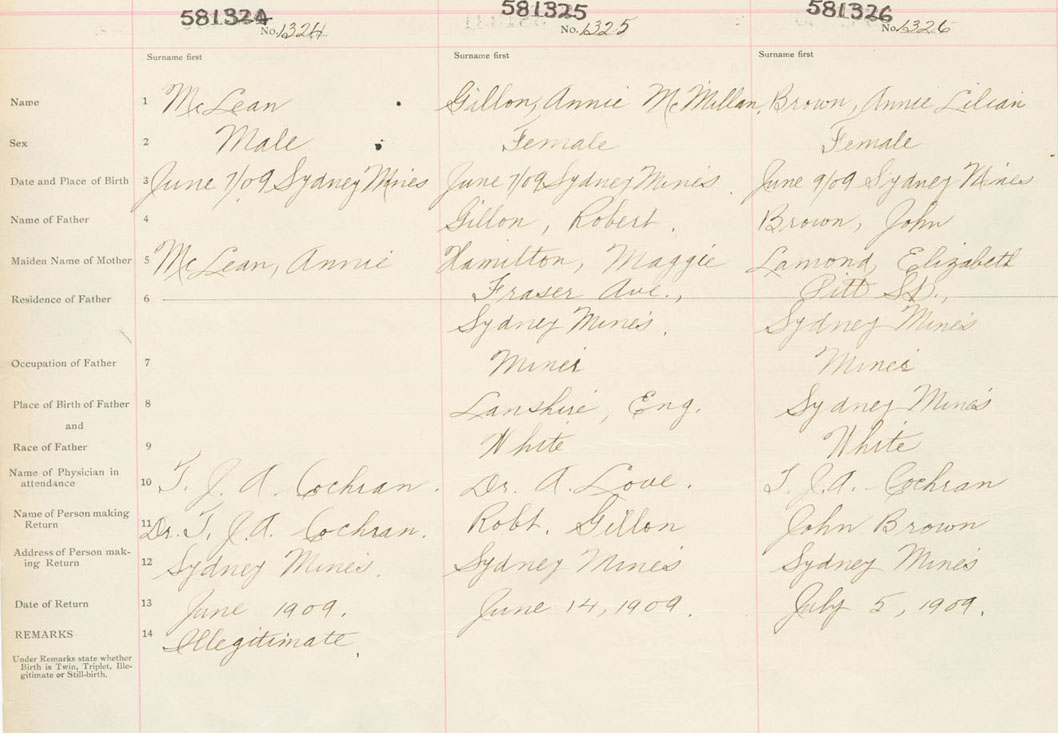 581324 581325 581326
No. 1324 No. 1325 No. 1326
Surname first Surname first Surname first
Name 1 McLean Gillon, Annie McMillan Brown, Annie Lilian
Sex 2 Male Female Female
Date and Place of Birth 3 June 7/09 Sydney Mines June 7/09 Sydney Mines. June 9/09 Sydney Mines
Name of Father 4 Gillon, Robert. Brown, John
Maiden Name of Mother 5 McLean, Annie Hamilton, Maggie Lamond, Elizabeth
Residence of Father 6 Fraser Ave., Pitt St.,
Sydney Mines. Sydney Mines
Occupation of Father 7 Miner Miner
Place of Birth of Father 8 Lanshire, Eng. Sydney Mines
and
Race of Father 9 White White
Name of Physician in
attendance 10 T. J. A. Cochran. Dr. A. Love. T. J. A. Cochran
Name of Person making
Return 11 Dr. T. J. A. Cochran. Robt. Gillon John Brown
Address of Person mak-
ing Return 12 Sydney Mines. Sydney Mines Sydney Mines
Date of Return 13 June 1909. June 14, 1909. July 5, 1909.
REMARKS 14 Illegitimate.
Under Remarks state whether
Birth is Twin, Triplet, Ille-
gitimate or Still-birth.